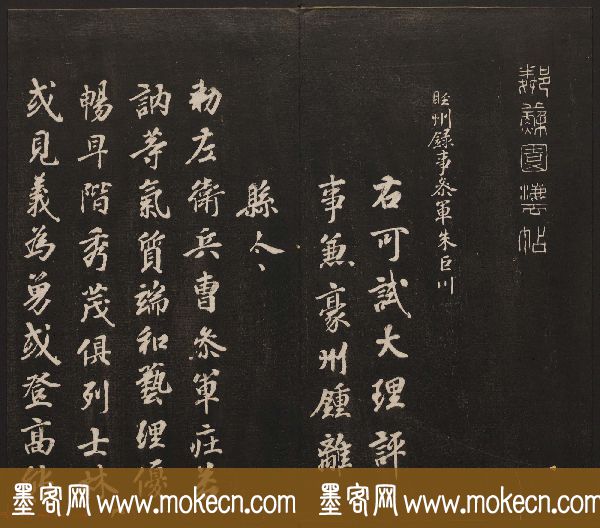 鄰蘇園法帖
睦州録事参軍朱巨川
右可試大理評
事兼豪州鍾離
縣令
勑左衛兵曹参軍莊若
訥等氣質端和藝理優
暢早階秀茂俱列士林
或見義為勇或登高能
墨客网 www.mokecn.com 墨客网 www.mokecn.com